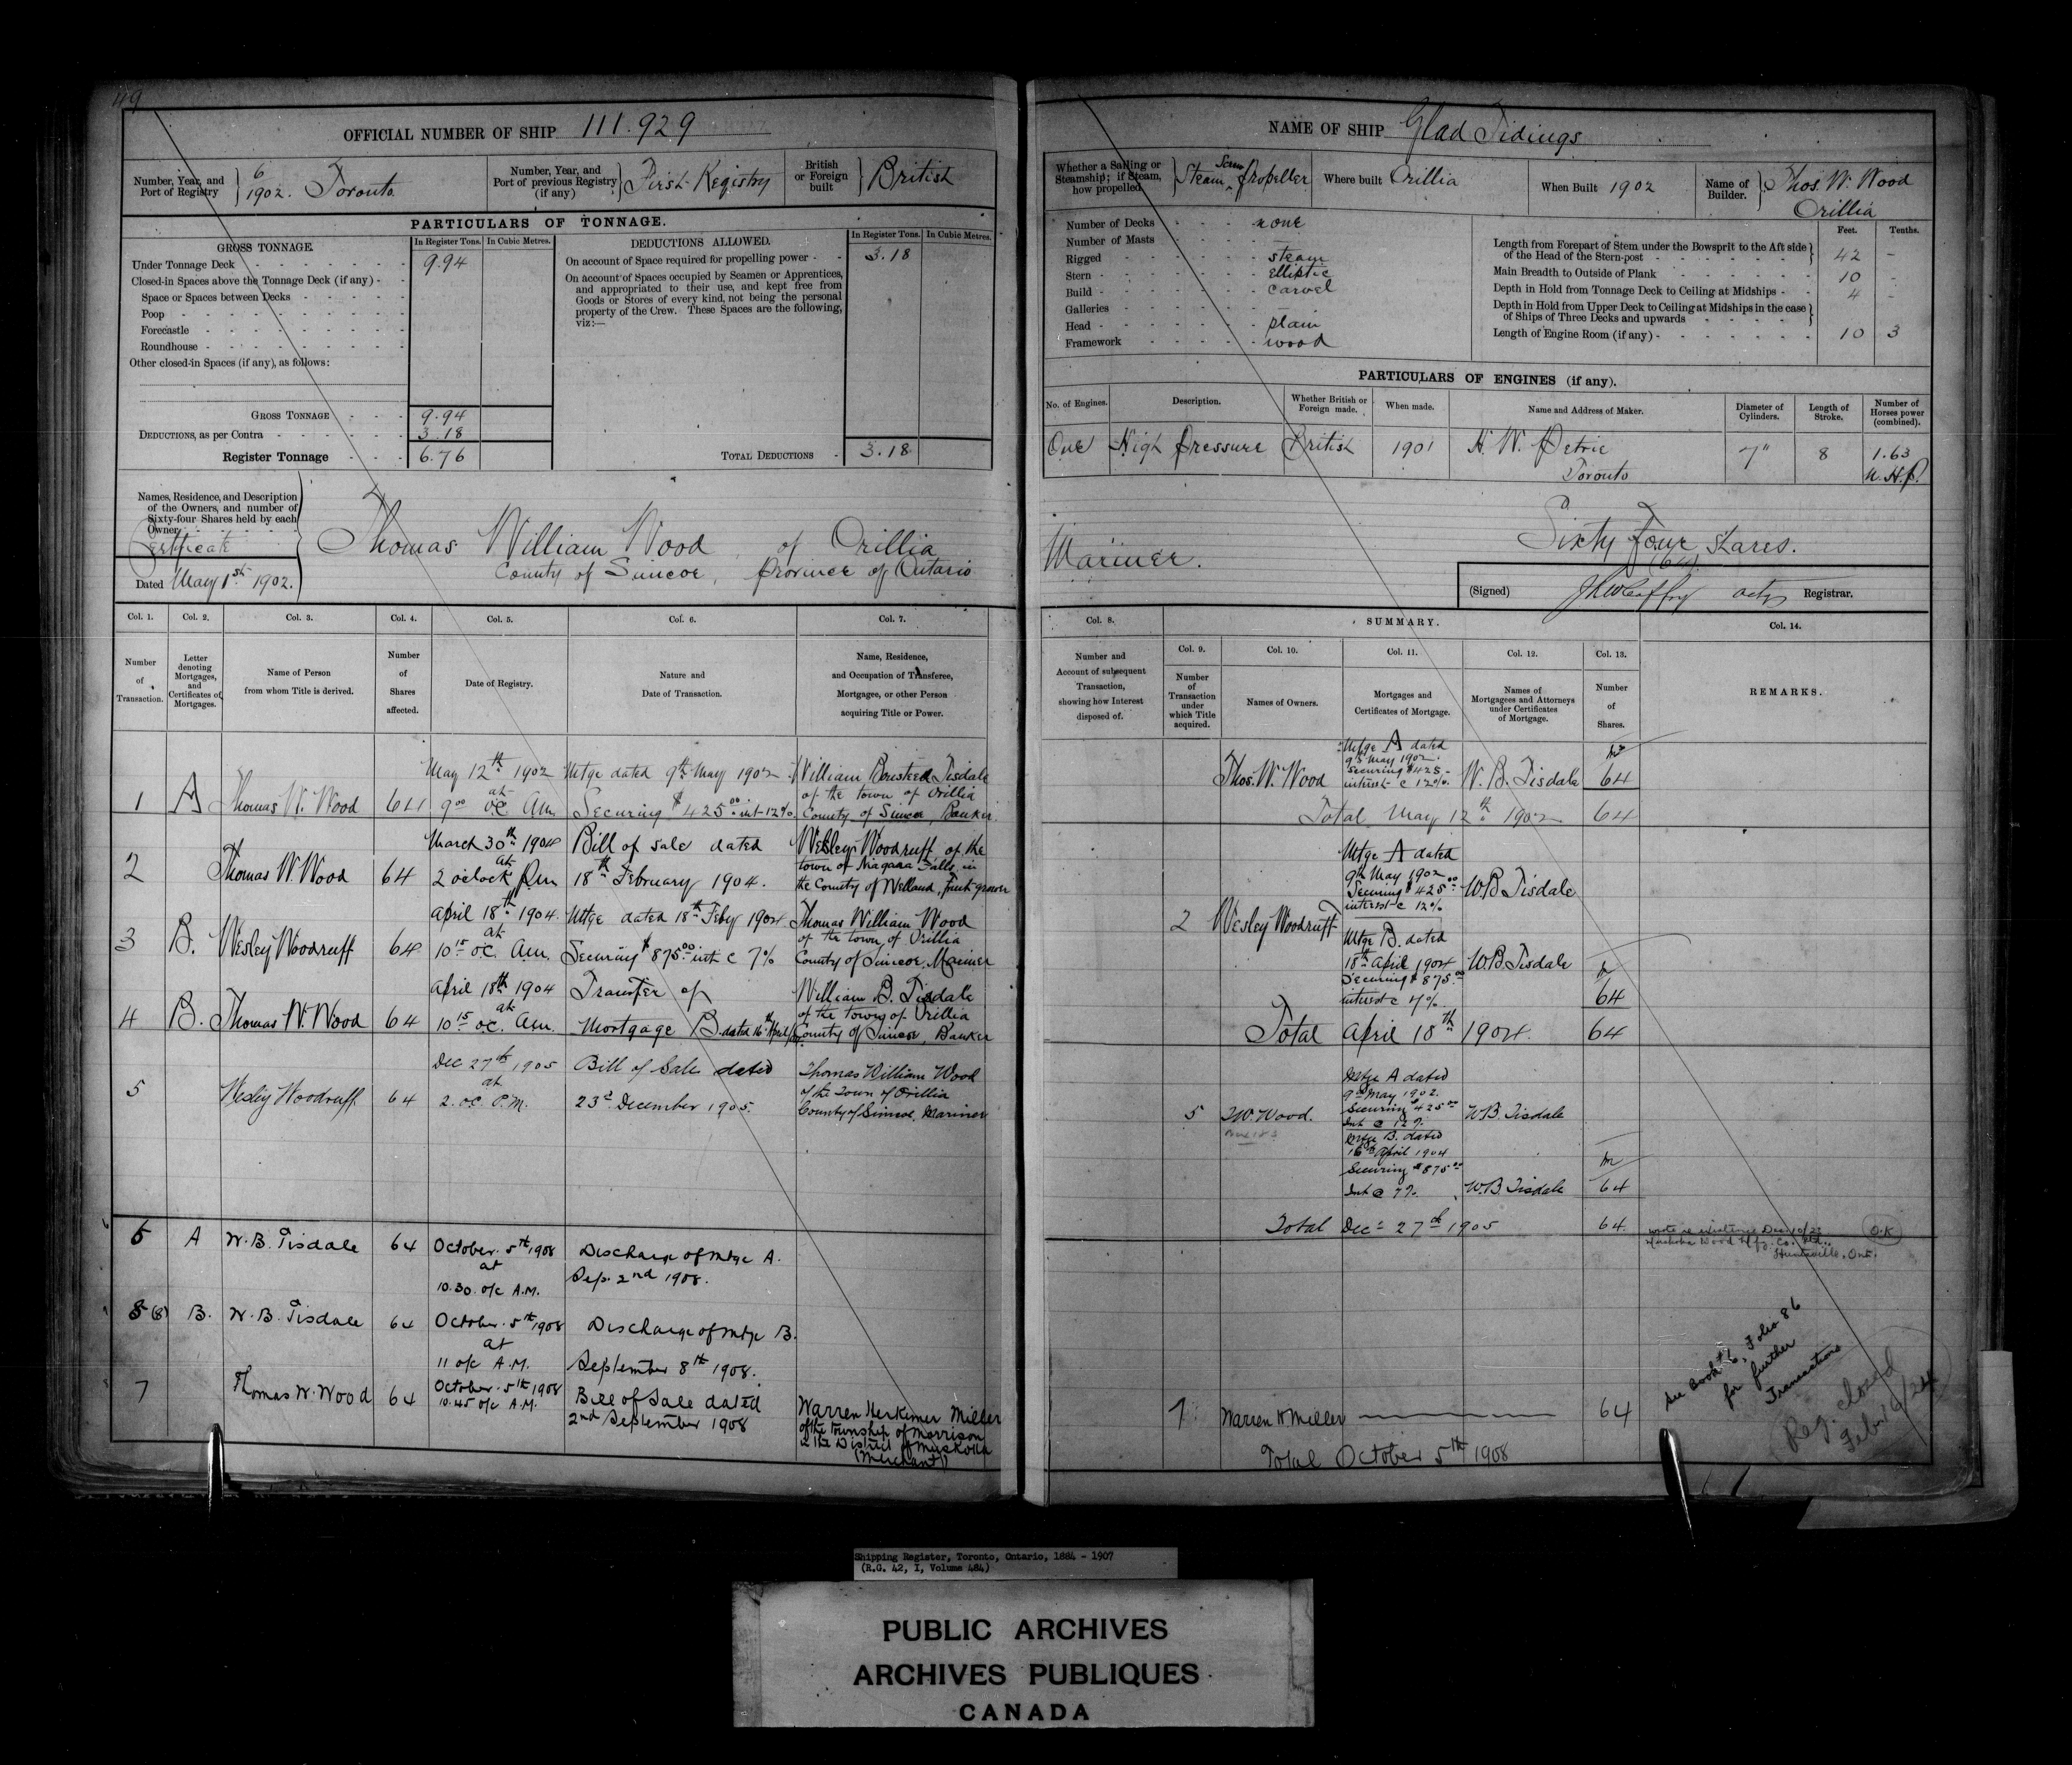 49
OFFICIAL NUMBER OF SHIP 111.929
Number, Year, and Port of Registry } 6 1902. Toronto
Number, Year, and Port of previous Registry (if any) } First Registry
British or Foreign built } British
PARTICULARS OF TONNAGE.
GROSS TONNAGE. In Register Tons. In Cubic Metres.
Under Tonnage Deck 9.94
Closed-in Spaces above the Tonnage Deck (if any)
Space or Spaces between Decks
Poop
Forecastle
Roundhouse
Other closed-in Spaces (if any), as follows:
GROSS TONNAGE 9.94
DEDUCTIONS, as per Contra 3.18
Register Tonnage 6.76
DEDUCTIONS ALLOWED. In Register Tons. In Cubic Metres.
On account of Space required for propelling power 3.18
On account of Spaces occupied by Seamen or Apprentices,
and appropriated to their use, and kept free from
Goods or Stores of every kind, not being the personal
property of the Crew. These Spaces are the following,
viz:—
TOTAL DEDUCTIONS 3.18
Names, Residence, and Description
of the Owners, and number of
Sixty-four Shares held by each
Owner
Certificate
Dated May 1st 1902.
Thomas William Wood, of Orillia
County of Simcoe, Province of Ontario
Col. 1. Col. 2. Col. 3. Col. 4. Col. 5. Col. 6. Col. 7.
Number of Transaction.
Letter denoting Mortgages, and Certificates of Mortgages.
Name of Person from whom Title is derived.
Number of Shares affected.
Date of Registry.
Nature and Date of Transaction.
Name, Residence, and Occupation of Transferee, Mortgagee, or other Person acquiring Title or Power.
1 A Thomas W. Wood 64
May 12th 1902
at
9 00 oc Am
Mtge dated 9th May 1902
Securing $425 00 int 12%
William Bousteed Tisdale
of the town of Orillia
County of Simcoe, Banker.
2 Thomas W. Wood 64
March 30th 1904
at
2 oclock Pm
Bill of sale dated
18th February 1904.
Wesley Woodruff of the
town of Niagara Falls in
the County of Welland, fruit grower
3 B. Wesley Woodruff 64
April 18th 1904.
at
10 15 oc. Am.
Mtge dated 18th Feby 1904
Securing $875 00 int @ 7%
Thomas William Wood
of the town of Orillia
County of Simcoe, Mariner
4 B. Thomas W. Wood 64
April 18th 1904
at
10 15 oc. Am.
Transfer of
Mortgage B. dated 16th April
William B. Tisdale
of the town of Orillia
County of Simcoe, Banker
5 Wesley Woodruff 64
Dec 27th 1905
at
2. oc. P.M.
Bill of Sale dated
23d. December 1905.
Thomas William Wood
of the Town of Orillia
County of Simcoe, Mariner
A W. B. Tisdale 64
October 5th 1908
at
10.30 o/c A.M.
Discharge of mtge A.
Sep. 2nd 1908.
(8) B. W. B. Tisdale 64
October 5th 1908
at
11 o/c A.M.
Discharge of mtge B.
September 8th 1908.
7 Thomas W. Wood 64
October 5th 1908
10.45 o/c A.M.
Bill of Sale dated
2nd September 1908
Warren Herkimer Miller
of the Township of Morrison
in the District of Muskoka
(Merchant)
NAME OF SHIP Glad Tidings
Whether a Sailing or Steamship; if Steam, how propelled } Steam Screw Propeller
Where built Orillia
When Built 1902
Name of Builder. } Thos. W. Wood
Orillia
Number of Decks none
Number of Masts —
Rigged steam
Stern elliptic
Build carvel
Galleries
Head plain
Framework wood
Feet. Tenths.
Length from Forepart of Stem under the Bowsprit to the Aft side
of the Head of the Stern-post 42 -
Main Breadth to Outside of Plank 10 -
Depth in Hold from Tonnage Deck to Ceiling at Midships 4 -
Depth in Hold from Upper Deck to Ceiling at Midships in the case
of Ships of Three Decks and upwards
Length of Engine Room (if any) 10 3
PARTICULARS OF ENGINES (if any).
No. of Engines. Description. Whether British or Foreign made. When made. Name and Address of Maker. Diameter of Cylinders. Length of Stroke. Number of Horses power (combined).
One High Pressure British 1901 H. W. Petrie 7" 8 1.63
Toronto N.H.P.
Mariner.
Sixty Four Shares.
(64).
(Signed) actg Registrar.
Col. 8. SUMMARY. Col. 14.
Col. 9. Col. 10. Col. 11. Col. 12. Col. 13.
Number and Account of subsequent Transaction, showing how Interest disposed of.
Number of Transaction under which Title acquired.
Names of Owners.
Mortgages and Certificates of Mortgage.
Names of Mortgagees and Attorneys under Certificates of Mortgage.
Number of Shares.
REMARKS.
Thos. W. Wood
Mtge A dated
9th May 1902.
Securing $425-
interest @ 12%.
W. B. Tisdale 64
Total May 12th 1902 64
2 Wesley Woodruff
Mtge A dated
9th May 1902
Securing $425 00
interest @ 12%
W.B. Tisdale
Mtge B. dated
18th April 1904
Securing $875.00
interest @ 7%.
W.B. Tisdale
64
Total April 18th 1904. 64
5 T.W. Wood.
Mtge A dated
9th May 1902.
Securing $425 00
Int @ 12%
W.B. Tisdale
Mtge B. dated
16th April 1904
Securing $875 00
Int @ 7%.
W.B. Tisdale 64
Total Dec. 27th 1905 64
Muskoka Wood Mfg. Co. Ltd.
Huntsville, Ont.
O.K
See Book #6, Folio 86
for further
Transactions
Reg. closed
Feb. 16/24
7 Warren H Miller 64
Total October 5th 1908
Shipping Register, Toronto, Ontario, 1884 - 1907
(R.G. 42, I, Volume 484)
PUBLIC ARCHIVES
ARCHIVES PUBLIQUES
CANADA